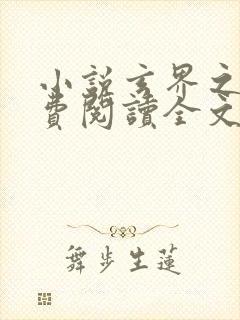 小說玄界之
費閱讀全文
舞步生蓮